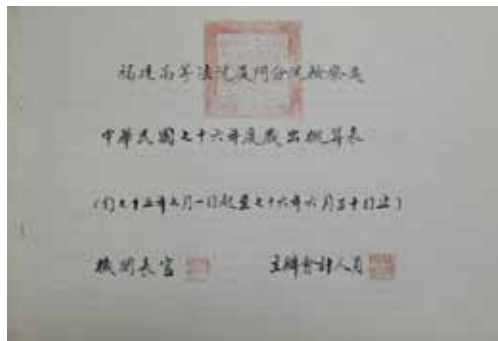 福建高等法院廈門分院檢察處
中華民國七十六年度歲出概算表
(自七十五年七月一日起至七十六年六月三十日止)
機關長官 主辦會計人員